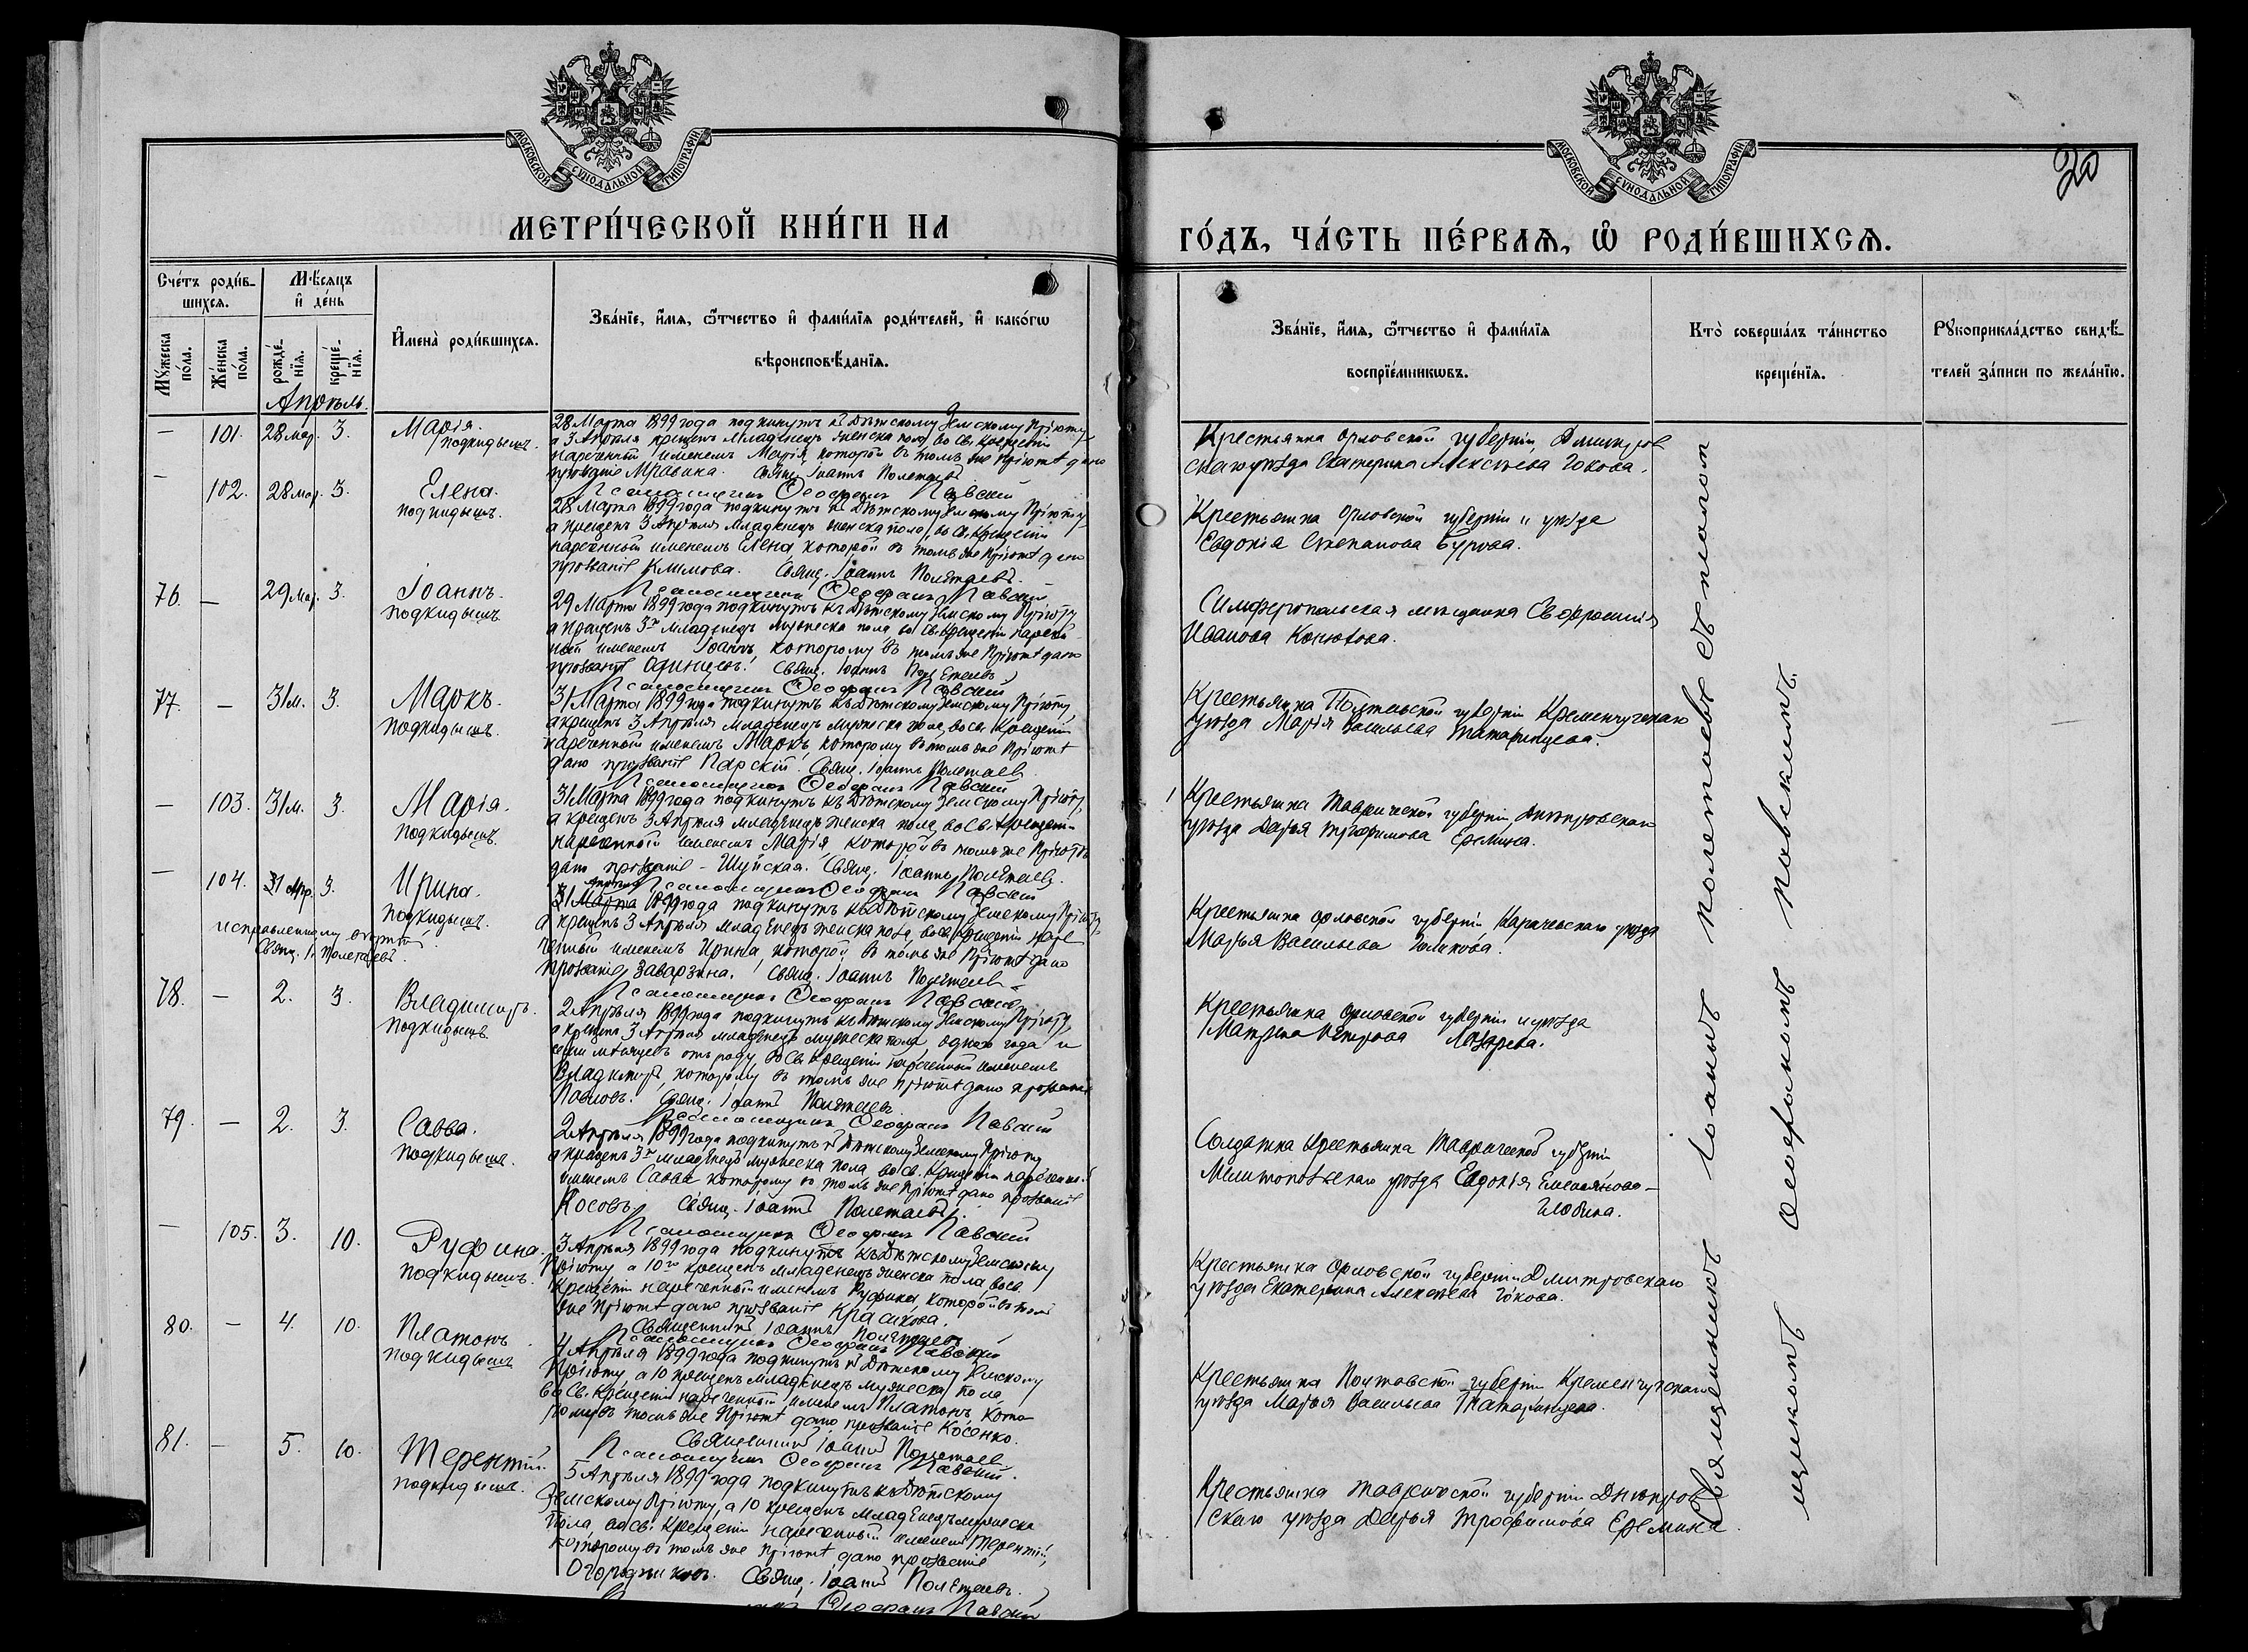 МОСКОВСКОЙ СУНОДАЛЬНОЙ ТИПОГРАФІИ
МЕТРИ́ЧЕСКОЙ КНИ́ГИ НА
Сче́тъ роди́в-
шихся.
Мѣ́сяцъ
и҆ де́нь
Мꙋ́жеска по́ла.
Же́нска по́ла.
рожде́-
нїя.
креще́-
нїя.
И҆мена̀ роди́вшихся.
Зва́нїе, и҆́мя, ѻ҆́тчество и҆ фами́лїя роди́телей, и҆ како́гѡ
вѣроисповѣ́данїя.
Апрѣль.
— 101. 28 мар. 3. Марія.
подкидышъ.
28 Марта 1899 года подкинутъ къ Дѣтскому Земскому Пріюту,
а 3 Апрѣля крещенъ младенецъ женска пола, во Св. Крещеніи
нареченный именемъ Марія, которой въ томъ же Пріютѣ дано
прозваніе Мравина. Свящ. Іоаннъ Полетаевъ
Псаломщикъ Ѳеофанъ Павскій
— 102. 28 мар. 3. Елена.
подкидышъ.
28 Марта 1899 года подкинутъ къ Дѣтскому Земскому Пріюту,
а крещенъ 3 Апрѣля младенецъ женска пола, во Св. Крещеніи
нареченный именемъ Елена, которой въ томъ же Пріютѣ дано
прозваніе Климова. Свящ. Іоаннъ Полетаевъ.
Псаломщикъ Ѳеофанъ Павскій
76. — 29 мар. 3. Іоаннъ.
подкидышъ.
29 Марта 1899 года подкинутъ къ Дѣтскому Земскому Пріюту,
а крещенъ 3го младенецъ мужеска пола, во Св. Крещеніи нарече
ный именемъ Іоаннъ, которому въ томъ же Пріютѣ дано
прозваніе Одинцовъ. Свящ. Іоаннъ Полетаевъ
Псаломщикъ Ѳеофанъ Павскій
77. — 31 м. 3. Маркъ.
подкидышъ.
31 Марта 1899 года подкинутъ къ Дѣтскому Земскому Пріюту,
а крещенъ 3 Апрѣля младенецъ мужеска пола, во Св. Крещеніи
нареченный именемъ Маркъ, которому въ томъ же Пріютѣ
дано прозваніе Парскій. Свящ. Іоаннъ Полетаевъ
Псаломщикъ Ѳеофанъ Павскій
— 103. 31 м. 3. Марія.
подкидышъ.
31 Марта 1899 года подкинутъ къ Дѣтскому Земскому Пріюту,
а крещенъ 3 Апрѣля младенецъ женска пола, во Св. Крещеніи
нареченный именемъ Марія, которой въ томъ же Пріютѣ
дано прозваніе — Шуйская. Свящ. Іоаннъ Полетаевъ.
Псаломщикъ Ѳеофанъ Павскій
— 104. 31 3. Ирина.
подкидышъ.
исправленному вѣрить.
Свящ. І. Полетаевъ.
31 Марта 1899 года подкинутъ къ Дѣтскому Земскому Пріюту,
а крещенъ 3 Апрѣля младенецъ женска пола, во Св. Крещеніи наре
ченный именемъ Ирина, которой въ томъ же Пріютѣ дано
прозваніе Заварзина. Свящ. Іоаннъ Полетаевъ
Псаломщикъ Ѳеофанъ Павскій
78. — 2. 3. Владиміръ.
подкидышъ.
2 Апрѣля 1899 года подкинутъ къ Дѣтскому Земскому Пріюту,
а крещенъ 3 Апрѣля младенецъ мужеска пола, одного года и
семи мѣсяцевъ отъ роду, во Св. Крещеніи нареченный именемъ
Владиміръ, которому въ томъ же Пріютѣ дано прозваніе
Павловъ. Свящ. Іоаннъ Полетаевъ.
Псаломщикъ Ѳеофанъ Павскій
79. — 2. 3. Савва.
подкидышъ.
2 Апрѣля 1899 года подкинутъ къ Дѣтскому Земскому Пріюту
а крещенъ 3го младенецъ мужеска пола, во Св. Крещеніи нареченный
именемъ Савва, которому въ томъ же Пріютѣ дано прозваніе
Косовъ. Свящ. Іоаннъ Полетаевъ.
Псаломщикъ Ѳеофанъ Павскій
— 105. 3. 10. Руфина.
подкидышъ.
3 Апрѣля 1899 года подкинутъ къ Дѣтскому Земскому
Пріюту, а 10го крещенъ младенецъ женска пола, во Св.
Крещеніи нареченный именемъ Руфина, которой въ томъ
же Пріютѣ дано прозваніе Красикова.
Священникъ Іоаннъ Полетаевъ
Псаломщикъ Ѳеофанъ Павскій
80. — 4. 10. Платонъ.
подкидышъ
4 Апрѣля 1899 года подкинутъ къ Дѣтскому Земскому
Пріюту, а 10 крещенъ младенецъ мужеска пола,
во Св. Крещеніи нареченный именемъ Платонъ, кото
рому въ томъ же Пріютѣ дано прозваніе Косенко.
Священникъ Іоаннъ Полетаевъ
Псаломщикъ Ѳеофанъ Павскій.
81. — 5. 10. Терентій.
подкидышъ.
5 Апрѣля 1899 года подкинутъ къ Дѣтскому
Земскому Пріюту, а 10 крещенъ младенецъ мужеска
пола, во Св. Крещеніи нареченный именемъ Терентій,
которому въ томъ же Пріютѣ дано прозваніе
Огородниковъ. Свящ. Іоаннъ Полетаевъ.
Ѳеофанъ Павскій
МОСКОВСКОЙ СУНОДАЛЬНОЙ ТИПОГРАФІИ
20
ГО́ДЪ, ЧА́СТЬ ПЕ́РВАЯ, Ѽ РОДИ́ВШИХСЯ.
Зва́нїе, и҆́мя, ѻ҆́тчество и҆ фами́лїя
воспрїе́мникѡвъ.
Кто̀ соверша́лъ та́инство
креще́нїя.
Рꙋкоприкла́дство свидѣ́-
телей за́писи по жела́нїю.
Крестьянка Орловской губерніи, Дмитров
скаго уѣзда Екатерина Алексѣева Гокова.
Крестьянка Орловской губерніи и уѣзда
Евдокія Степанова Бурова.
Симферопольская мѣщанка Евфросинія
Иванова Конюхова.
Крестьянка Полтавской губерніи Кременчугскаго
уѣзда Марія Васильева Татаринцева.
Крестьянка Таврической губерніи, Днѣпровскаго
уѣзда Дарья Трофимова Еремина.
Крестьянка Орловской губерніи Карачевскаго уѣзда
Марья Васильева Голикова.
Крестьянка Орловской губерніи и уѣзда
Матрена Петрова Лазарева.
Солдатка крестьянка Таврической губерніи
Мелитопольскаго уѣзда Евдокія Емельянова —
Глобина.
Крестьянка Орловской губерніи Дмитровскаго
уѣзда Екатерина Алексѣева Гокова.
Крестьянка Полтавской губерніи Кременчугскаго
уѣзда Марья Васильева Татаринцева.
Крестьянка Таврической губерніи Днѣпров
скаго уѣзда Дарья Трофимова Еремина.
Священникъ Іоаннъ Полетаевъ съ псалом
щикомъ Ѳеофаномъ Павскимъ.